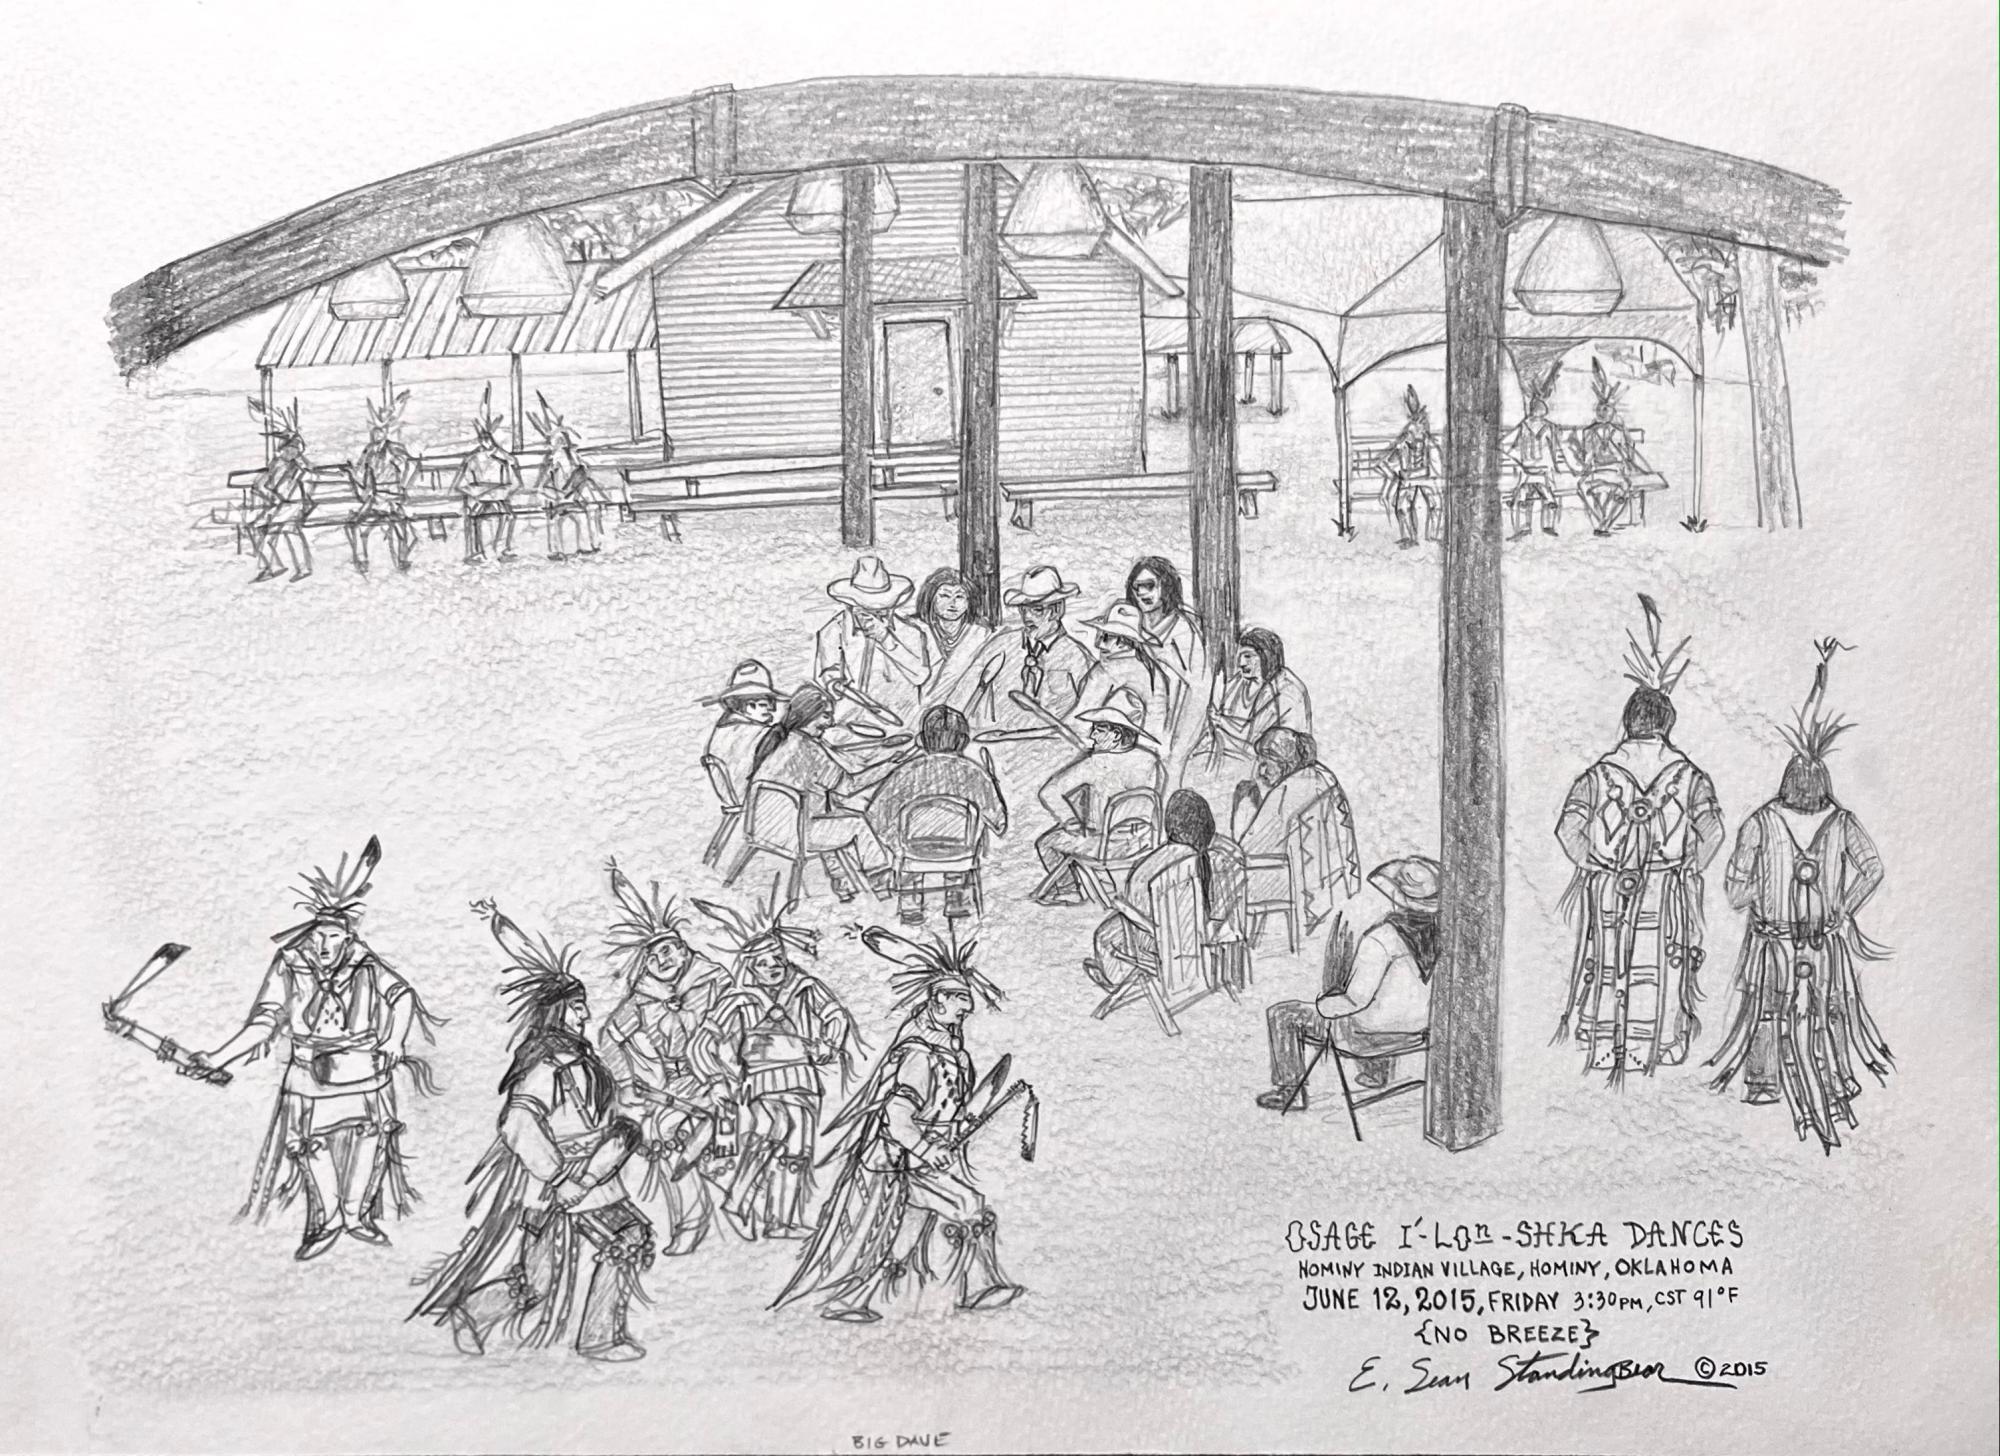 OSAGE I'-LOn-SHKA DANCES
HOMINY INDIAN VILLAGE, HOMINY, OKLAHOMA
JUNE 12, 2015, FRIDAY 3:30PM, CST 91°F
{NO BREEZE}
E. Sean StandingBear ©2015
BIG DAVE